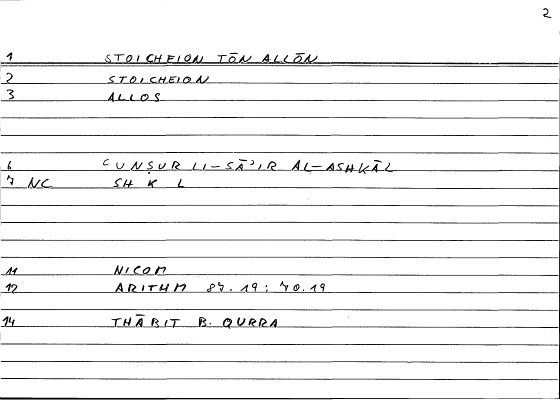 2
1 STOICHEION TŌN ALLŌN
2 STOICHEION
3 ALLOS
6 ʿUNṢUR LI-SĀʾIR AL-ASHKĀL
7 NC SH K L
11 NICOM
12 ARITHM 87.19: 70.19
14 THĀBIT B. QURRA